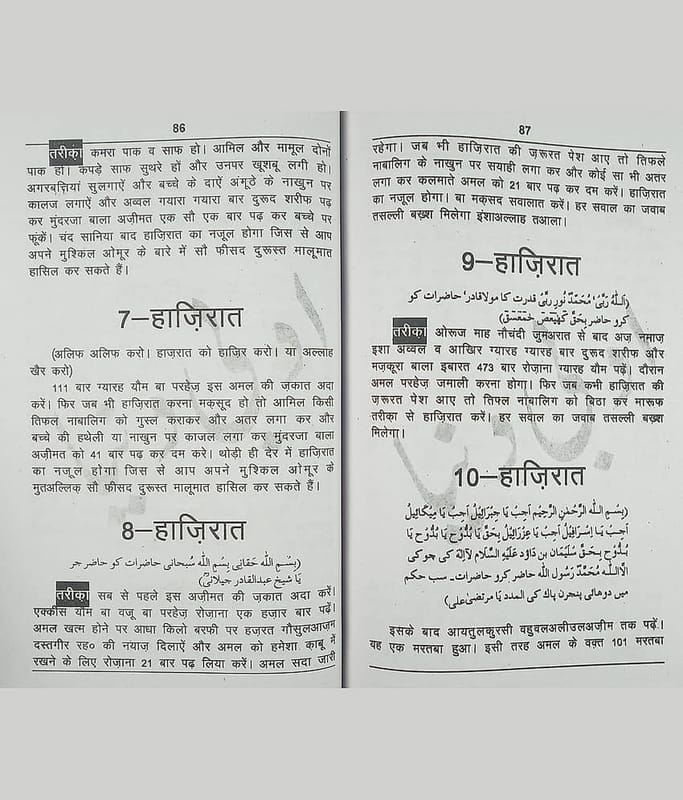 86
तरीक़ा कमरा पाक व साफ हो। आमिल और मामूल दोनों
पाक हों। कपड़े साफ सुथरे हों और उनपर खूशबू लगी हो।
अगरबत्तियां सुलगाऐं और बच्चे के दाऐं अंगूठे के नाखुन पर
कालज लगाऐं और अव्वल गयारा गयारा बार दुरूद शरीफ पढ़
कर मुंदरजा बाला अज़ीमत एक सौ एक बार पढ़ कर बच्चे पर
फूंकें। चंद सानिया बाद हाज़िरात का नजूल होगा जिस से आप
अपने मुश्किल ओमूर के बारे में सौ फीसद दुरूस्त मालूमात
हासिल कर सकते हैं।
7–हाज़िरात
(अलिफ अलिफ करो। हाज़रात को हाज़िर करो। या अल्लाह
खैर करो)
111 बार ग्यारह यौम बा परहेज़ इस अमल की ज़कात अदा
करें। फिर जब भी हाज़िरात करना मक्सूद हो तो आमिल किसी
तिफल नाबालिग को गुस्ल कराकर और अतर लगा कर और
बच्चे की हथेली या नाखुन पर काजल लगा कर मुंदरजा बाला
अज़ीमत को 41 बार पढ़ कर दम करे। थोड़ी ही देर में हाज़िरात
का नजूल होगा जिस से आप अपने मुश्किल ओमूर के
मुतअल्लिक़ सौ फीसद दुरूस्त मालूमात हासिल कर सकते हैं।
8–हाज़िरात
(بِسْمِ اللّٰہ حَقَانِی بِسْمِ اللّٰہ سُبحانی حاضرات کو حاضر جر
یَا شیخ عبدالقادر جیلانیؒ)
तरीक़ा सब से पहले इस अज़ीमत की ज़कात अदा करें।
एक्कीस यौम बा वजू बा परहेज़ रोज़ाना एक हज़ार बार पढ़ें।
अमल खत्म होने पर आधा किलो बरफी पर हज़रत गौसुलआज़म
दस्तगीर रह० की नयाज़ दिलाऐं और अमल को हमेशा क़ाबू में
रखने के लिए रोज़ाना 21 बार पढ़ लिया करें। अमल सदा जारी
87
रहेगा। जब भी हाज़िरात की ज़रूरत पेश आए तो तिफले
नाबालिग के नाखुन पर सयाही लगा कर और कोई सा भी अतर
लगा कर कलमाते अमल को 21 बार पढ़ कर दम करें। हाज़िरात
का नजूल होगा। बा मक़सद सवालात करें। हर सवाल का जवाब
तसल्ली बख़्श मिलेगा इंशाअल्लाह तआला।
9–हाज़िरात
(اَللّٰہُ رَبِّیْ مُحَمَّدْ نُورِ رَبِّیْ قدرت کا مولا قادر حاضرات کو
کرو حاضر بِحَقِّ کٓھٰیٰعٓصٓ حٰمٓعٓسٓقٓ)
तरीक़ा ओरूज माह नौचंदी जुमअरात से बाद अज़ नमाज़
इशा अव्वल व आखिर ग्यारह ग्यारह बार दुरूद शरीफ और
मज़कूरा बाला इबारत 473 बार रोज़ाना ग्यारह यौम पढ़ें। दौरान
अमल परहेज़ जमाली करना होगा। फिर जब कभी हाज़िरात की
ज़रूरत पेश आए तो तिफ्ल नाबालिग को बिठा कर मारूफ
तरीक़ा से हाज़िरात करें। हर सवाल का जवाब तसल्ली बख़्श
मिलेगा।
10–हाज़िरात
(بِسْمِ اللّٰہِ الرَّحْمٰنِ الرَّحِیْمِ اَجِبْ یَا جِبْرَائِیْلُ اَجِبْ یَا مِیکَائِیلُ
اَجِبْ یَا اِسْرَافِیْلُ اَجِبْ یَا عِزْرَائِیْلُ بِحَقِّ یَا بُدُّوْحُ یَا بُدُّوْحُ یَا
بُدُّوْحُ بِحَقِّ سُلَیْمَانَ بِن دَاوٗد عَلَیْہِ السَّلَام لَآاِلٰہَ کی چوکی
اِلَّا اللّٰہُ مُحَمَّدٌ رَسُولُ اللّٰہ حاضر کرو حاضرات۔ سب حکم
میں دوھائی پنجتن پاك کی المدد یا مرتضیٰ علی)
इसके बाद आयतुलकुरसी वहुवलअलीउलअज़ीम तक पढ़ें।
यह एक मरतबा हुआ। इसी तरह अमल के वक़्त 101 मरतबा